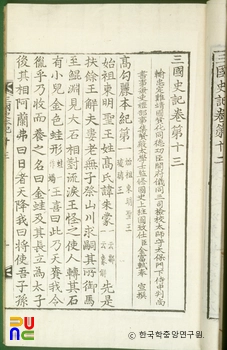 三國史記卷第十三
輸忠定難靖國贊化同德功臣開府儀同三司檢校太師守太保門下侍中判尚
書事兼吏禮部事集賢殿大學士監修國史上柱國致仕臣金富軾奉 宣撰
高句麗本紀第一 始祖東明聖王 琉璃王
始祖東明聖王姓高氏諱朱蒙 一云鄒牟 一云衆解 先是
扶餘王解夫婁老無子祭山川求嗣其所御馬
至鯤淵見大石相對流淚王怪之使人轉其石
有小兒金色蛙形 蛙一作蝸 王喜曰此乃天賚我令
胤乎乃收而養之名曰金蛙及其長立為太子
後其相阿蘭弗曰日者天降我曰將使吾子孫
© 한국학중앙연구원.